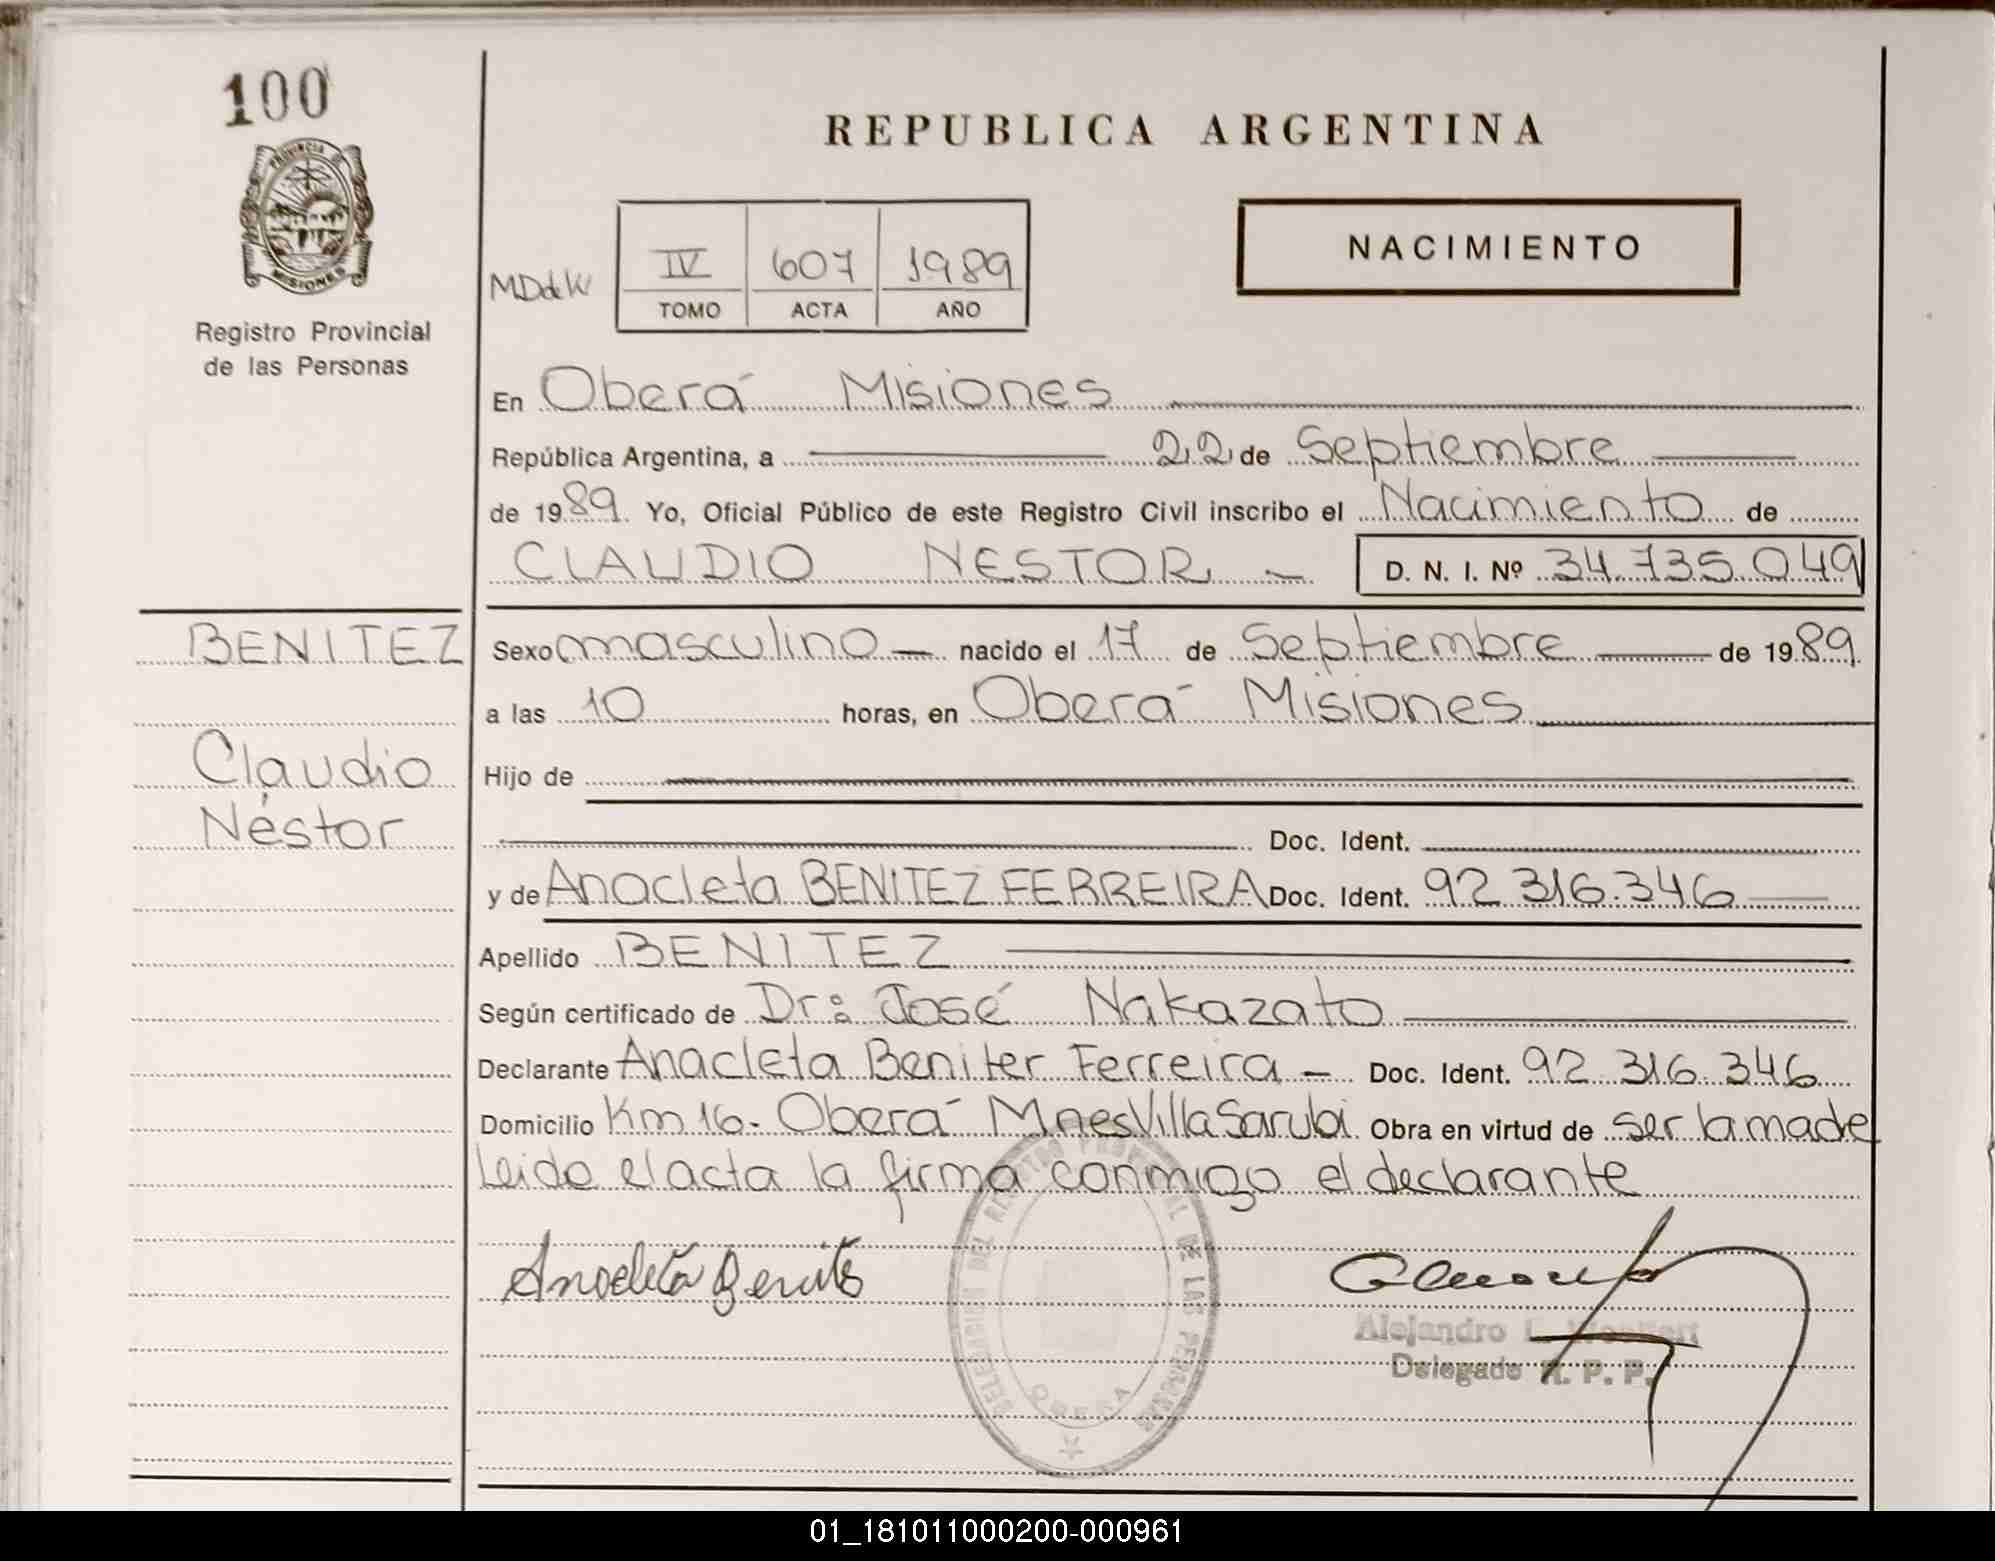 100
PROVINCIA DE
MISIONES
Registro Provincial
de las Personas
REPUBLICA ARGENTINA
NACIMIENTO
MDdeW
IV 607 1989
TOMO ACTA AÑO
En Oberá Misiones
República Argentina, a 22 de Septiembre
de 1989. Yo, Oficial Público de este Registro Civil inscribo el Nacimiento de
CLAUDIO NESTOR - D. N. I. Nº 34.735.049
BENITEZ
Claudio
Néstor
Sexo masculino - nacido el 17 de Septiembre de 1989
a las 10 horas, en Oberá Misiones
Hijo de
Doc. Ident.
y de Anacleta BENITEZ FERREIRA Doc. Ident. 92.316.346
Apellido BENITEZ
Según certificado de Dr: José Nakazato
Declarante Anacleta Beniter Ferreira - Doc. Ident. 92.316.346
Domicilio Km 16. Oberá Mnes Villa Sarubi Obra en virtud de ser la made
Leido el acta la firma conmigo el declarante
Anacleta Benites
DELEGACION DEL REGISTRO PROVINCIAL DE LAS PERSONAS
OBERA
Alejandro L.
Delegado R. P. P.
01_181011000200-000961